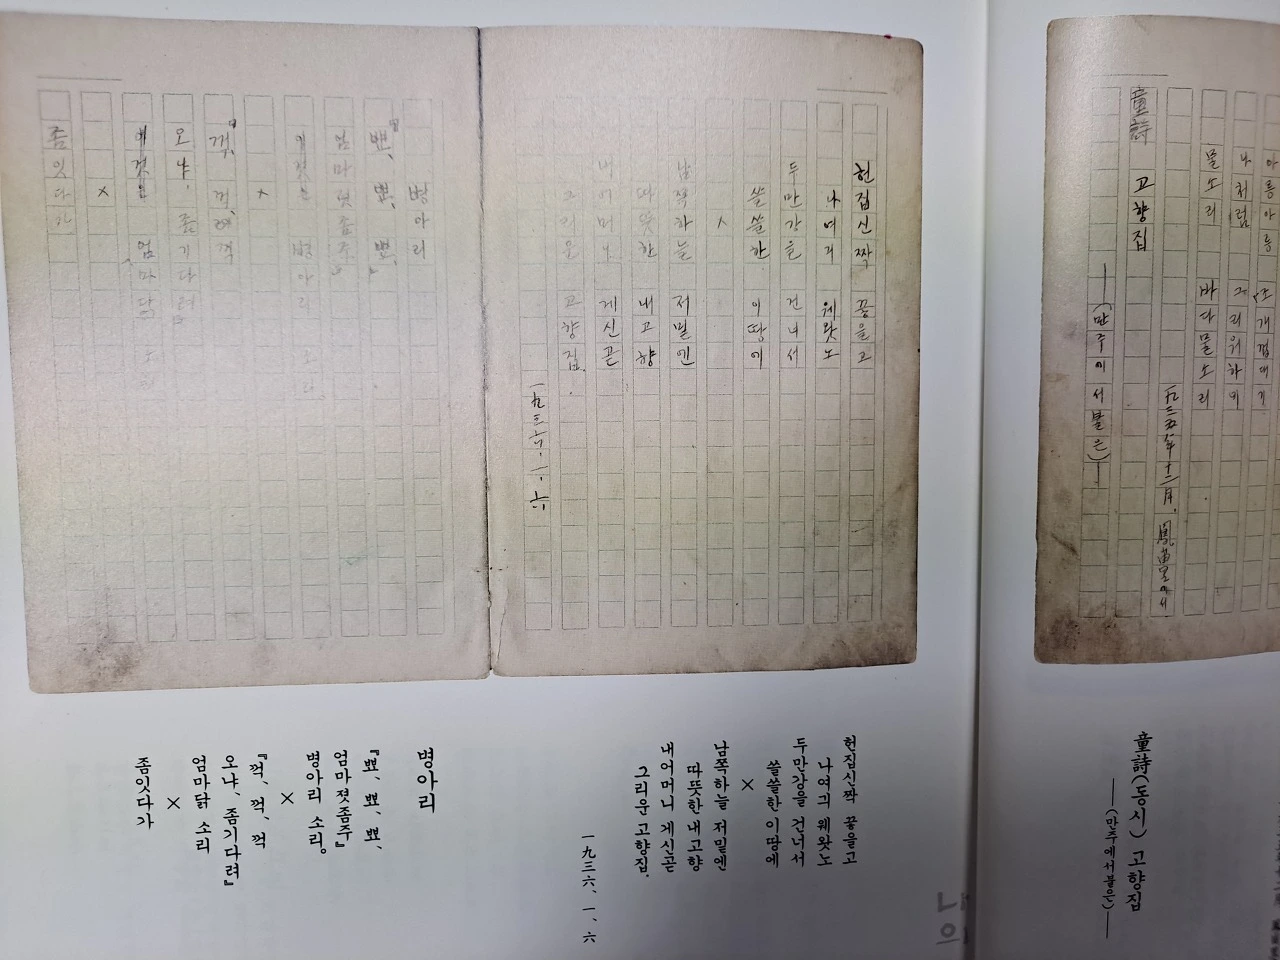 아롱아롱 조개껍대기
나처럼 그리워하네
물소리 바다물소리
一九三五年十二月、鳳峀里에서
童詩 고향집
——(만주에서불은)——
헌집신짝 끟을고
나여긔 웨왓노
두만강을 건너서
쓸쓸한 이땅에
×
남쪽하늘 저밑엔
따뜻한 내고향
내어머니 게신곧
그리운 고향집.
一九三六、一、六
병아리
『뾰、뾰、뾰、
엄마젓좀주』
병아리 소리.
×
『꺽、꺽、꺽
오냐、좀기다려』
엄마닭 소리
×
좀잇다가
童詩(동시) 고향집
——(만주에서불은)——
헌집신짝 끟을고
나여긔 웨왓노
두만강을 건너서
쓸쓸한 이땅에
×
남쪽하늘 저밑엔
따뜻한 내고향
내어머니 게신곧
그리운 고향집.
一九三六、一、六
병아리
『뾰、뾰、뾰、
엄마젓좀주』
병아리 소리。
×
『꺽、꺽、꺽
오냐、좀기다려』
엄마닭 소리
×
좀잇다가